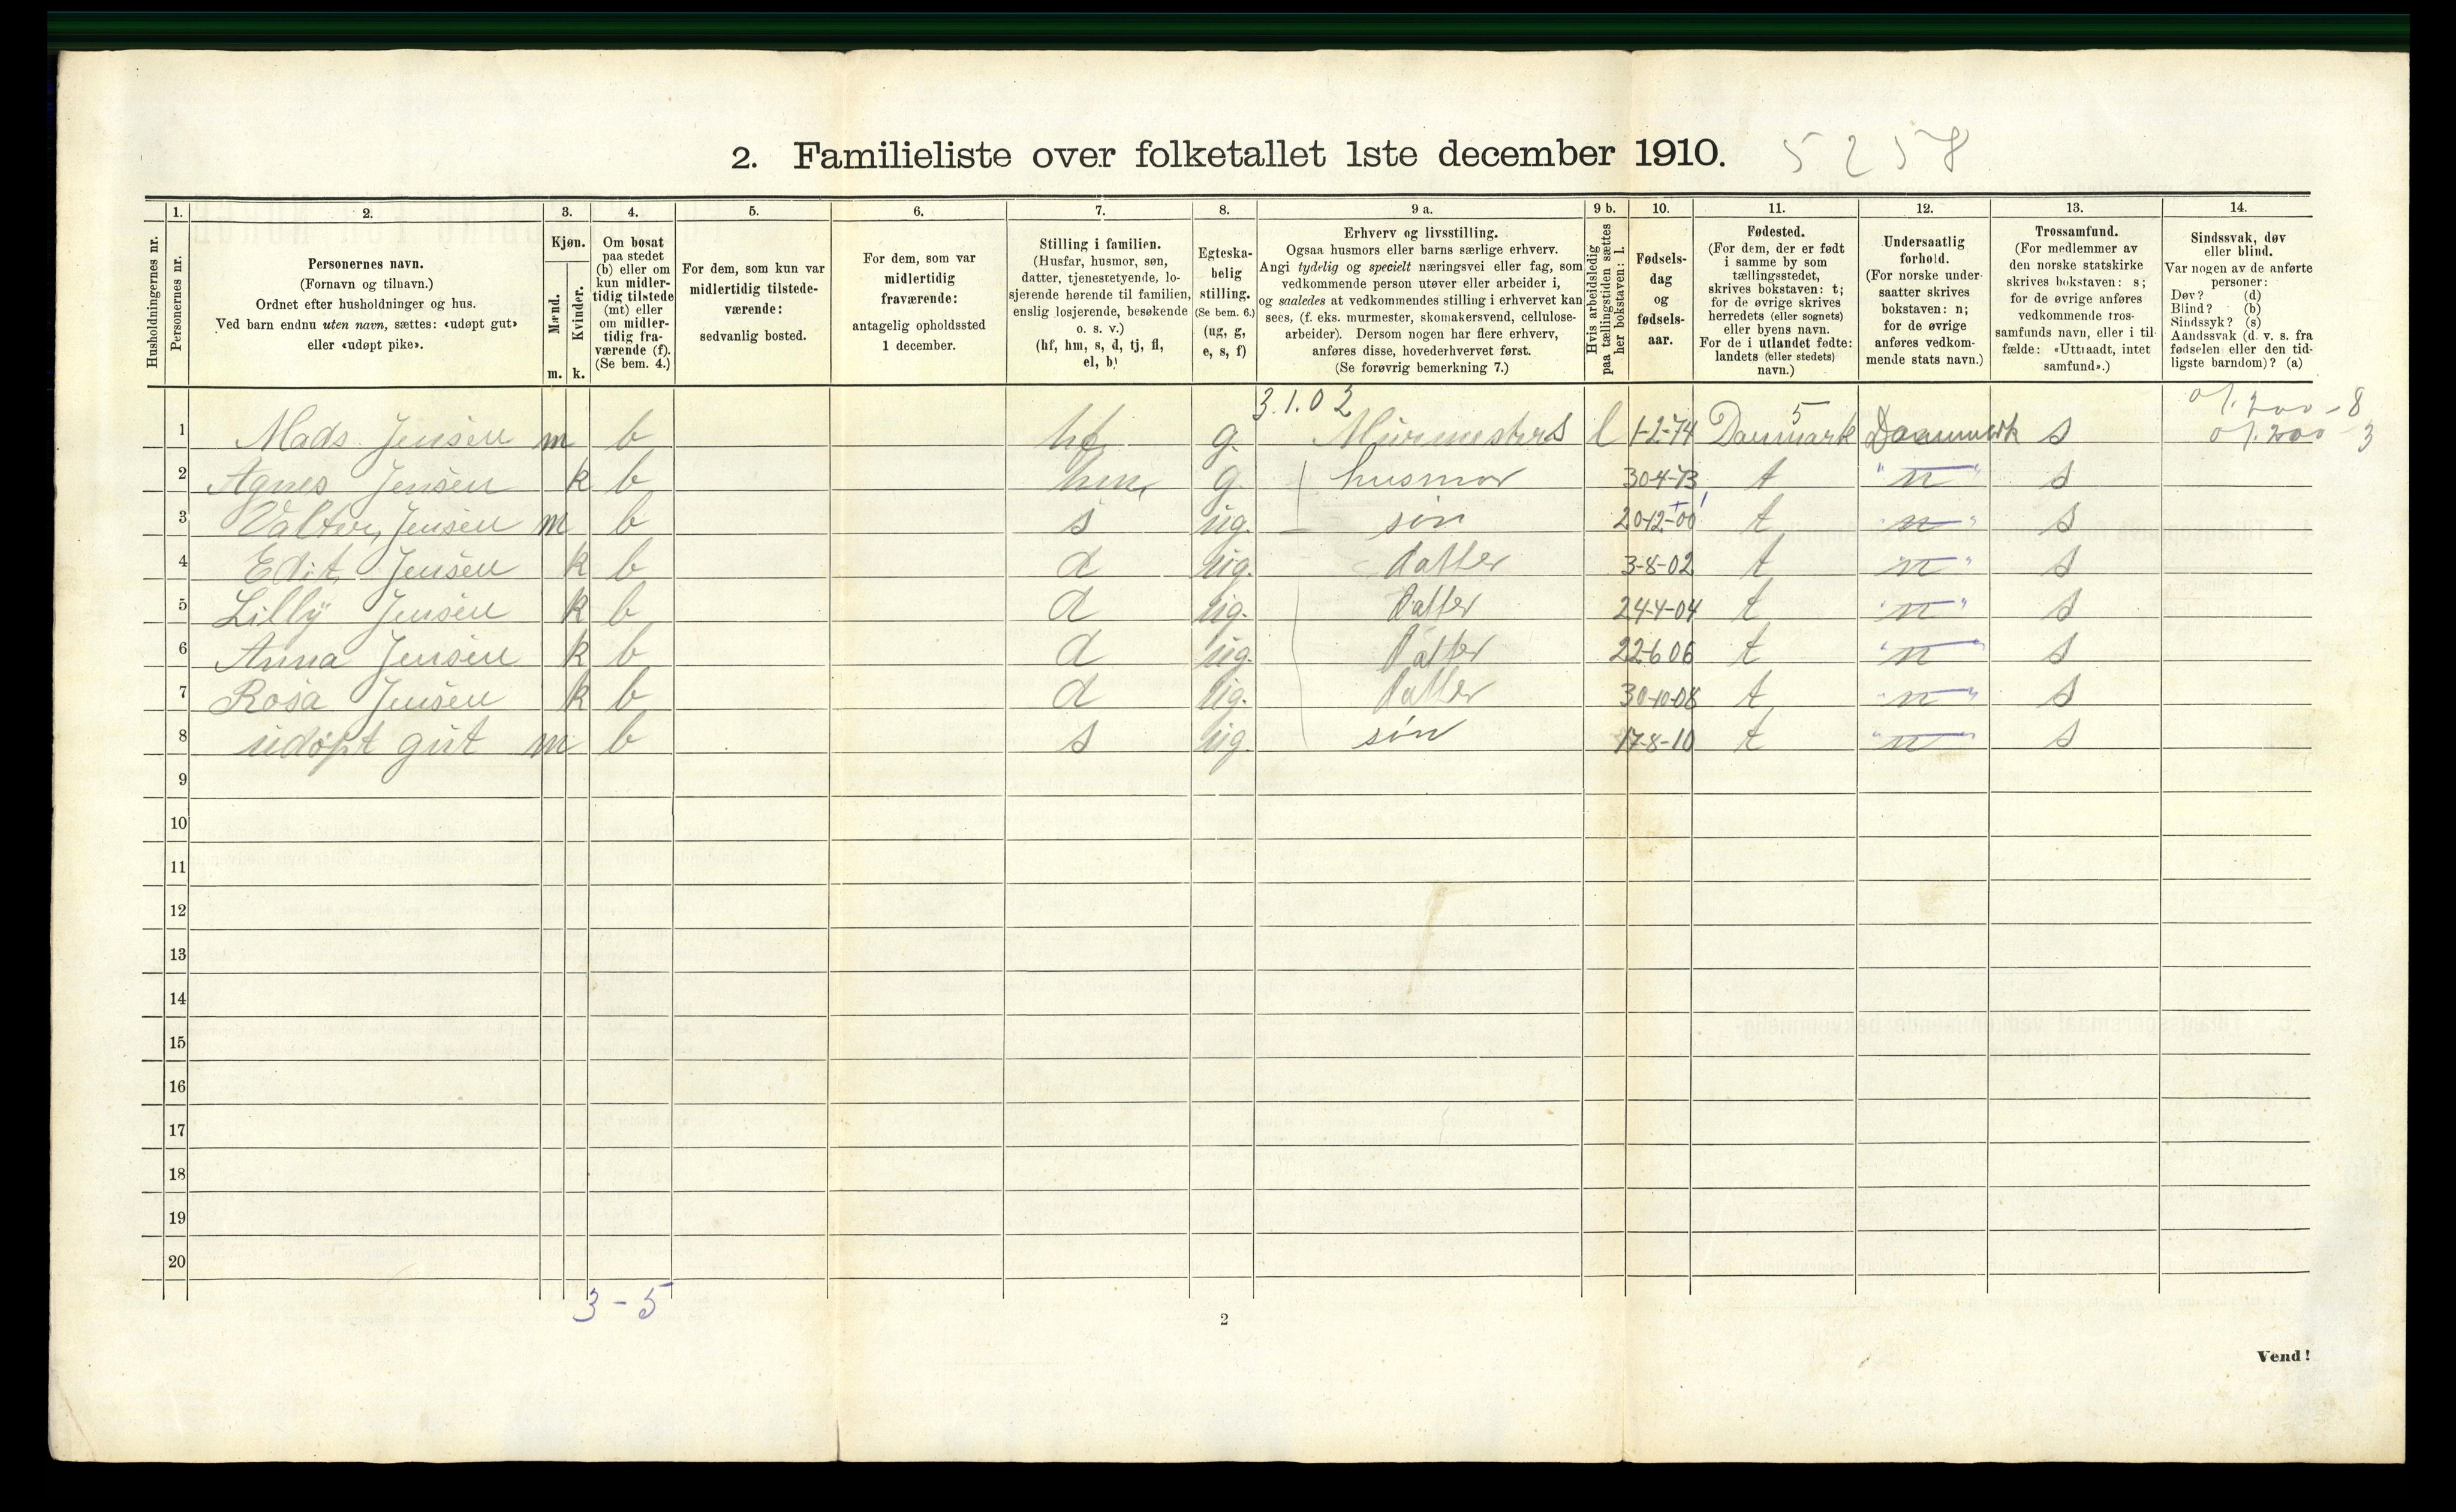 2. Familieliste over folketallet 1ste december 1910. 5258
Husholdningernes nr.
1. Personernes nr.
2. Personernes navn.
(Fornavn og tilnavn.)
Ordnet efter husholdninger og hus.
Ved barn endnu uten navn, sættes: «udøpt gut»
eller «udøpt pike».
3. Kjøn.
Mænd. m.
Kvinder. k.
4. Om bosat
paa stedet
(b) eller om
kun midler-
tidig tilstede
(mt) eller
om midler-
tidig fra-
værende (f).
(Se bem. 4.)
5. For dem, som kun var
midlertidig tilstede-
værende:
sedvanlig bosted.
6. For dem, som var
midlertidig
fraværende:
antagelig opholdssted
1 december.
7. Stilling i familien.
(Husfar, husmor, søn,
datter, tjenestetyende, lo-
sjerende hørende til familien,
enslig losjerende, besøkende
o. s. v.)
(hf, hm, s, d, tj, fl,
el, b)
8. Egteska-
belig
stilling.
(Se bem. 6.)
(ug, g,
e, s, f)
9 a. Erhverv og livsstilling.
Ogsaa husmors eller barns særlige erhverv.
Angi tydelig og specielt næringsvei eller fag, som
vedkommende person utøver eller arbeider i,
og saaledes at vedkommendes stilling i erhvervet kan
sees, (f. eks. murmester, skomakersvend, cellulose-
arbeider). Dersom nogen har flere erhverv,
anføres disse, hovederhvervet først.
(Se forøvrig bemerkning 7.)
9 b. Hvis arbeidsledig
paa tællingstiden sættes
her bokstaven: l.
10. Fødsels-
dag
og
fødsels-
aar.
11. Fødested.
(For dem, der er født
i samme by som
tællingsstedet,
skrives bokstaven: t;
for de øvrige skrives
herredets (eller sognets)
eller byens navn.
For de i utlandet fødte:
landets (eller stedets)
navn.)
12. Undersaatlig
forhold.
(For norske under-
saatter skrives
bokstaven: n;
for de øvrige
anføres vedkom-
mende stats navn.)
13. Trossamfund.
(For medlemmer av
den norske statskirke
skrives bokstaven: s;
for de øvrige anføres
vedkommende tros-
samfunds navn, eller i til-
fælde: «Uttraadt, intet
samfund».)
14. Sindssvak, døv
eller blind.
Var nogen av de anførte
personer:
Døv? (d)
Blind? (b)
Sindssyk? (s)
Aandssvak (d. v. s. fra
fødselen eller den tid-
ligste barndom)? (a)
3.1.02 5
1 Mads Jensen m b hf g. l 1-2-74 Danmark Danmark s
2 Agnes Jensen k b hm g. husmor 30-4-73 t " n " s
3 Valter Jensen m b s ug. søn 20-12-00 t " n " s
4 Edit Jensen k b d ug. datter 3-8-02 t " n " s
5 Lilly Jensen k b d ug. datter 24-4-04 t " n " s
6 Anna Jensen k b d ug. datter 22-6 06 t " n " s
7 Rosa Jensen k b d ug. datter 30-10-08 t " n " s
8 udøpt gut m b s ug. søn 17-8-10 t " n " s
9
10
11
12
13
14
15
16
17
18
19
20
3 - 5
2
Vend!